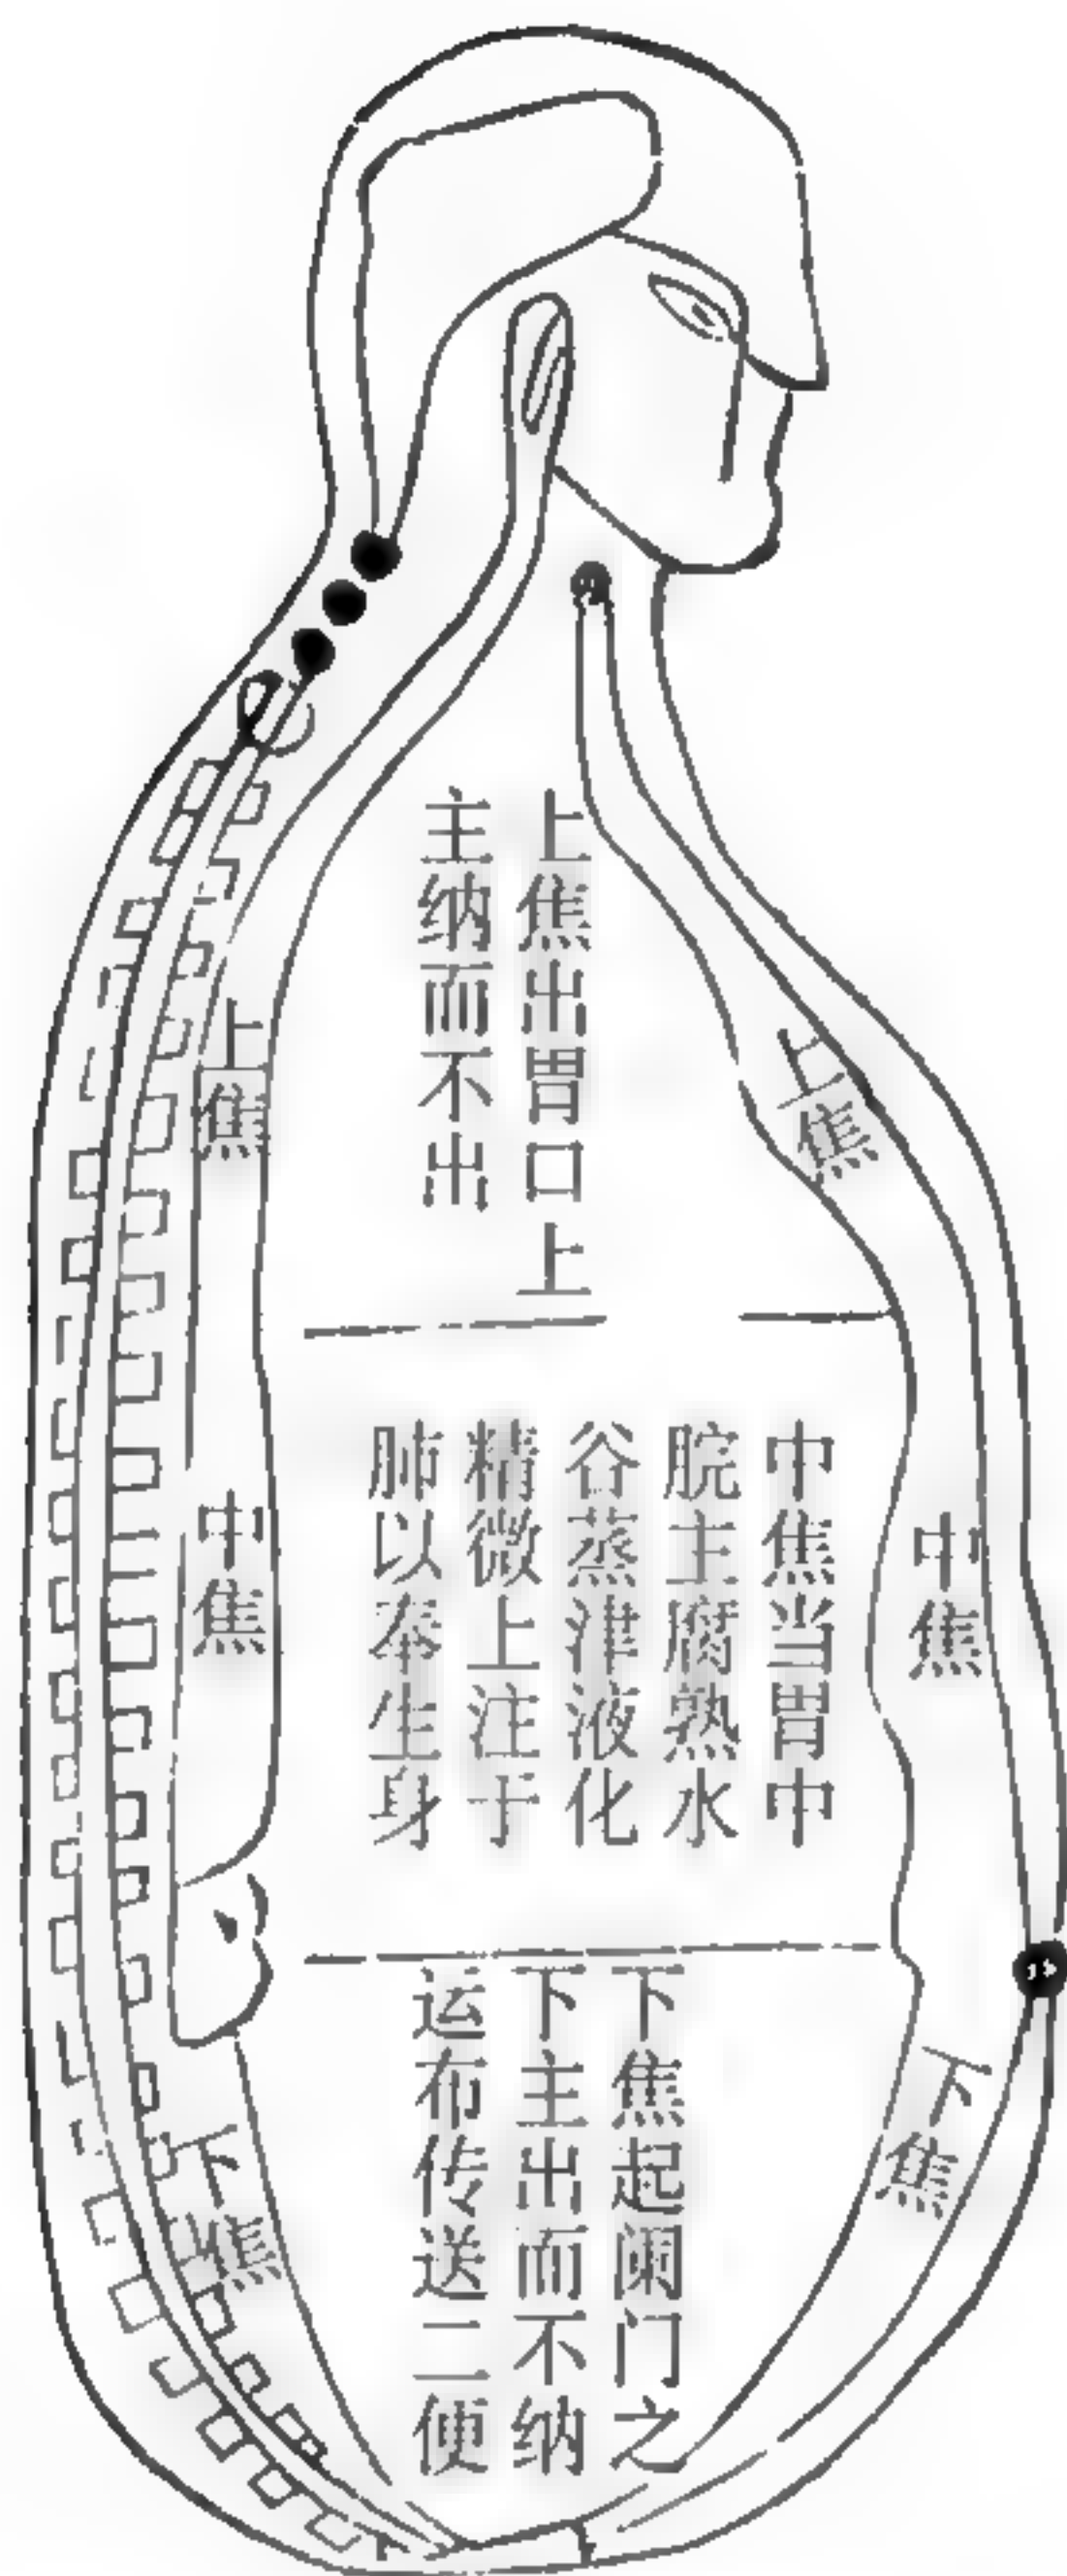 上焦出胃口上
主纳而不出
上焦
上焦
中焦当胃中
脘主腐熟水
谷蒸津液化
精微上注于
肺以奉生身
中焦
中焦
下焦起阑门之
下主出而不纳
运布传送二便
下焦
下焦